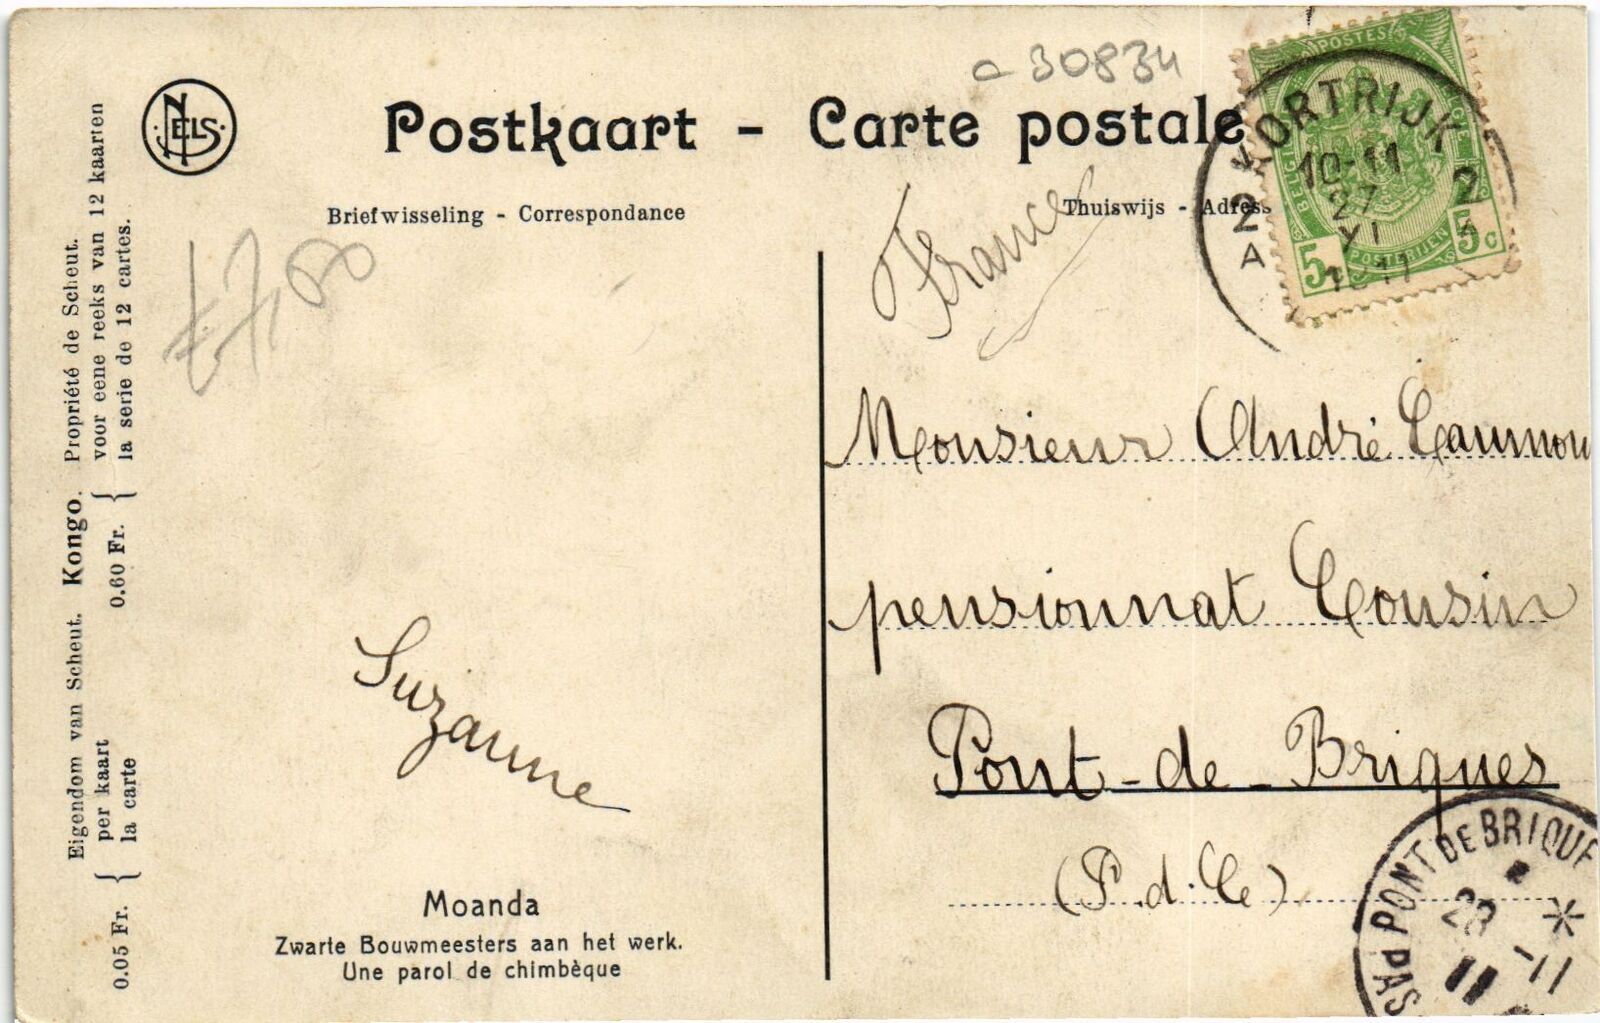 a 30834
NELS
Postkaart - Carte postale
Briefwisseling - Correspondance
Thuiswijs - Adress
France
POSTES
BELGIQUE
POSTERIJEN
5 5c
KORTRIJK
2 2
A
10-11
27
XI
1911
€7,00
Eigendom van Scheut. Kongo. Propriété de Scheut.
0.05 Fr. { per kaart 0.60 Fr. { voor eene reeks van 12 kaarten
la carte la serie de 12 cartes.
Monsieur André Caumon
pensionnat Cousin
Pont-de-Briques
(P.d.Ce)
Suzanne
Moanda
Zwarte Bouwmeesters aan het werk.
Une parol de chimbèque
PONT DE BRIQUE
PAS
28 -11
11